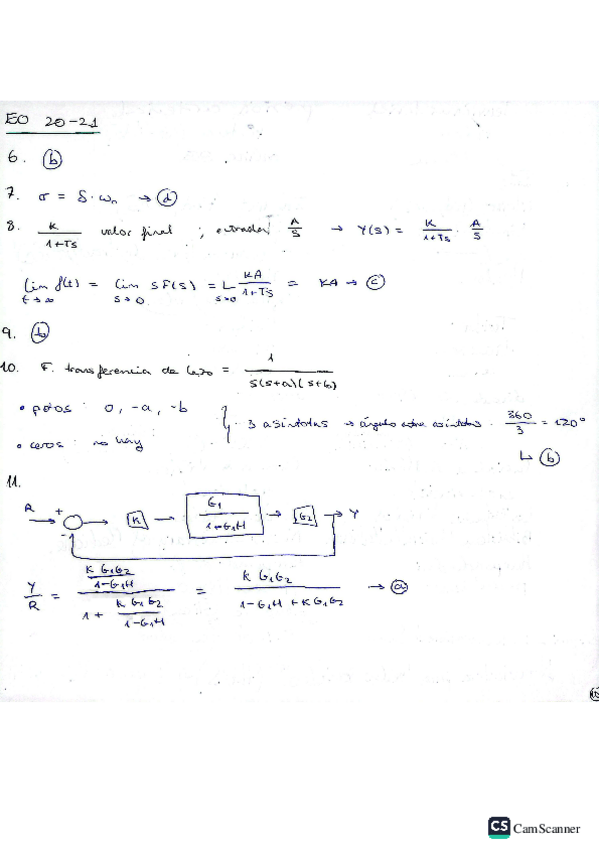 EO 20-21
6. (b)
7. σ = δ·ωn → (d)
8. K/(1+Ts) valor final ; entrada A/S → Y(s) = K/(1+Ts) · A/S
lim f(t) = lim S F(s) = L KA/(1+Ts) = KA → (c)
t→∞ s→0 s→0
9. (b)
10. F. transferencia de lazo = 1/(S(s+a)(s+b))
• polos: 0, -a, -b } 3 asíntotas → ángulo entre asíntotas. 360/3 = 120°
• ceros: no hay ↳ (b)
11.
R + - K G1/(1-G1H) G2 Y
Y/R = (K G1G2/(1-G1H))/(1 + K G1G2/(1-G1H)) = K G1G2/(1-G1H+KG1G2) → (a)
CS CamScanner